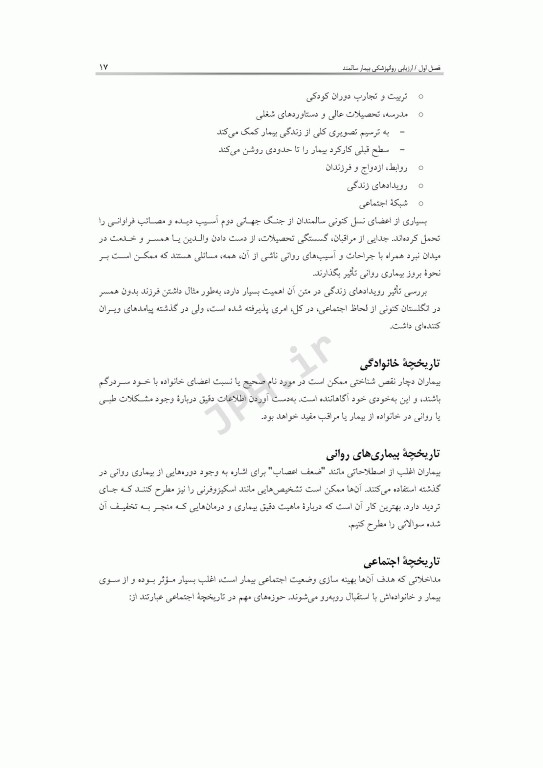 فصل اول / ارزیابی روانپزشکی بیمار سالمند ۱۷
○ تربیت و تجارب دوران کودکی
○ مدرسه، تحصیلات عالی و دستاوردهای شغلی
– به ترسیم تصویری کلی از زندگی بیمار کمک می‌کند
– سطح قبلی کارکرد بیمار را تا حدودی روشن می‌کند
○ روابط، ازدواج و فرزندان
○ رویدادهای زندگی
○ شبکهٔ اجتماعی
بسیاری از اعضای نسل کنونی سالمندان از جنگ جهانی دوم آسیب دیده و مصائب فراوانی را
تحمل کرده‌اند. جدایی از مراقبان، گسستگی تحصیلات، از دست دادن والدین یا همسر و خدمت در
میدان نبرد همراه با جراحات و آسیب‌های روانی ناشی از آن، همه، مسائلی هستند که ممکن است بر
نحوهٔ بروز بیماری روانی تأثیر بگذارند.
بررسی تأثیر رویدادهای زندگی در متن آن اهمیت بسیار دارد، به‌طور مثال داشتن فرزند بدون همسر
در انگلستان کنونی از لحاظ اجتماعی، در کل، امری پذیرفته شده است، ولی در گذشته پیامدهای ویران
کننده‌ای داشت.
تاریخچهٔ خانوادگی
بیماران دچار نقص شناختی ممکن است در مورد نام صحیح یا نسبت اعضای خانواده با خود سردرگم
باشند، و این به‌خودی خود آگاهاننده است. به‌دست آوردن اطلاعات دقیق دربارهٔ وجود مشکلات طبی
یا روانی در خانواده از بیمار یا مراقب مفید خواهد بود.
تاریخچهٔ بیماری‌های روانی
بیماران اغلب از اصطلاحاتی مانند "ضعف اعصاب" برای اشاره به وجود دوره‌هایی از بیماری روانی در
گذشته استفاده می‌کنند. آن‌ها ممکن است تشخیص‌هایی مانند اسکیزوفرنی را نیز مطرح کنند که جای
تردید دارد. بهترین کار آن است که دربارهٔ ماهیت دقیق بیماری و درمان‌هایی که منجر به تخفیف آن
شده سوالاتی را مطرح کنیم.
تاریخچهٔ اجتماعی
مداخلاتی که هدف آن‌ها بهینه سازی وضعیت اجتماعی بیمار است، اغلب بسیار مؤثر بوده و از سوی
بیمار و خانواده‌اش با استقبال روبه‌رو می‌شوند. حوزه‌های مهم در تاریخچهٔ اجتماعی عبارتند از:
JPH.ir